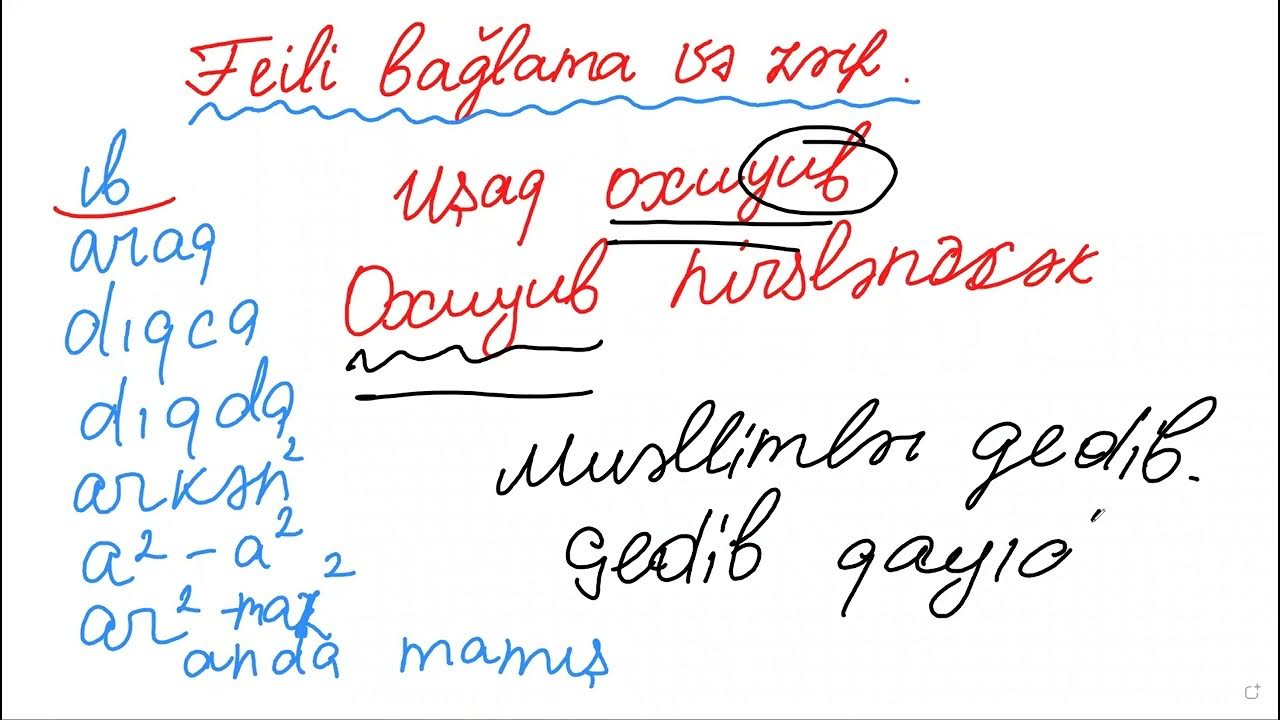 Feili bağlama və zərf.
ıb
araq
dıqca
dıqda
arkən²
a² - a²
ar² - maz 2
anda mamış
uşaq oxuyub
Oxuyub hirslənəcək
Muəllimlər gedib.
gedib qayıd